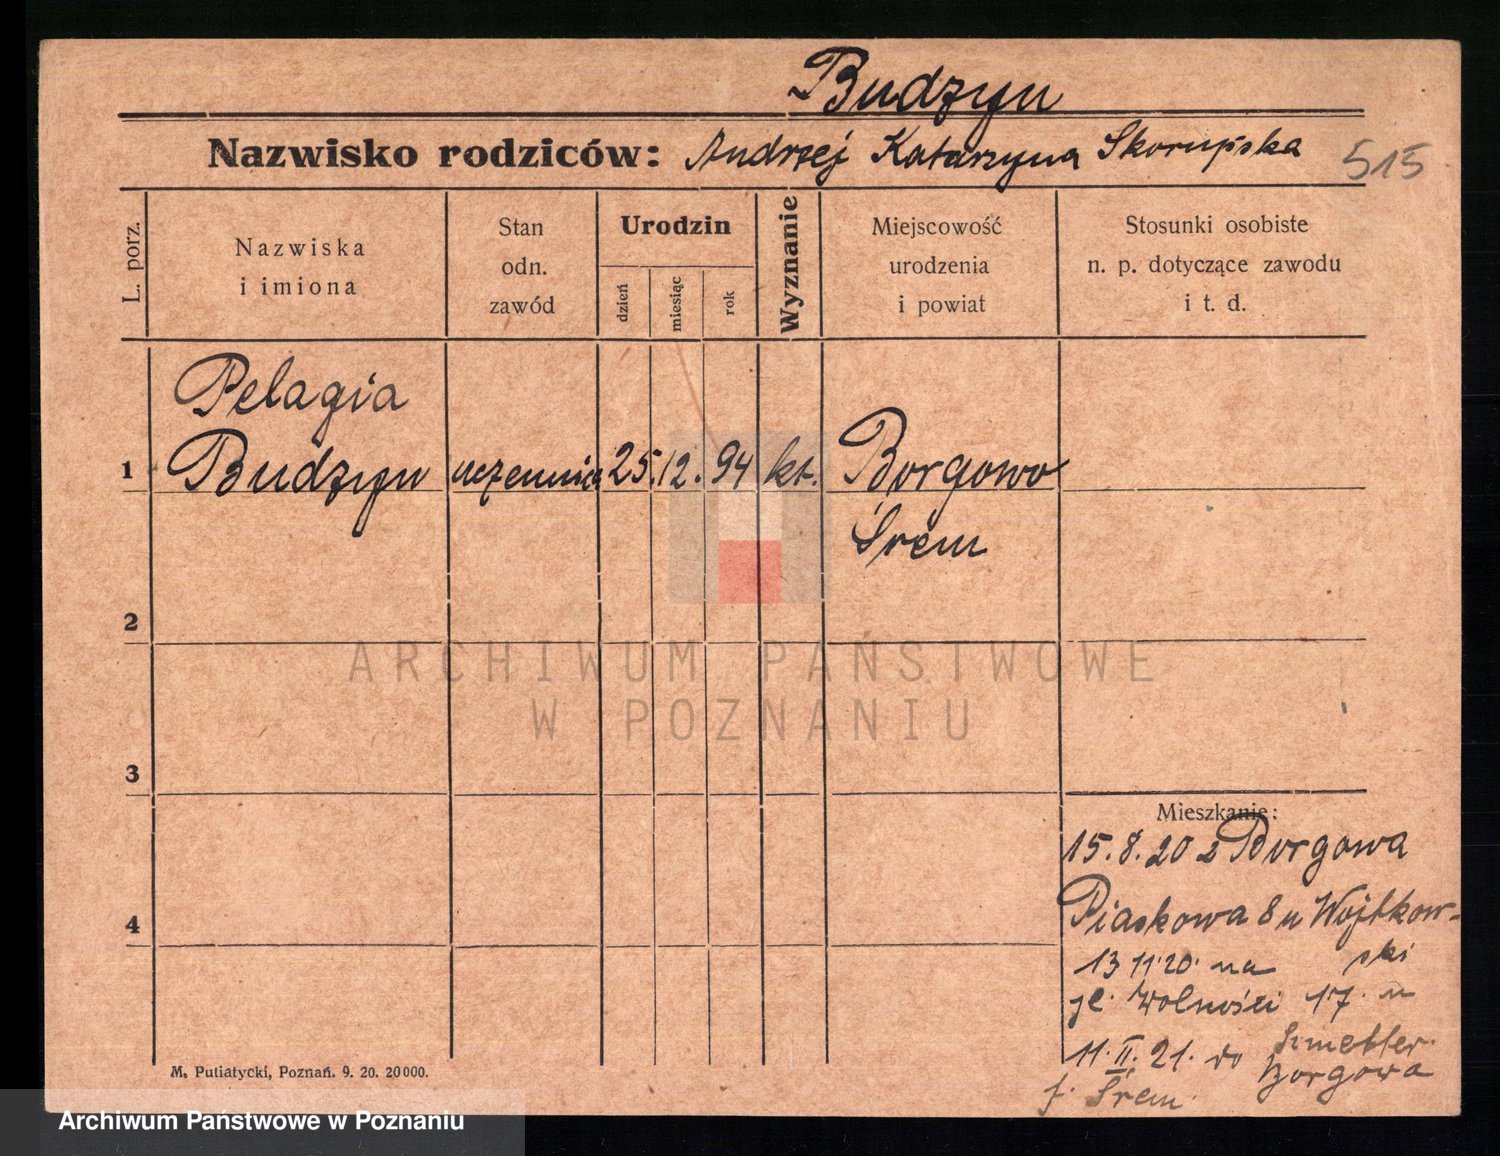 Budzyn
Nazwisko rodziców: Andrzej Katarzyna Skorupska 515
L. porz.
Nazwiska
i imiona
Stan
odn.
zawód
Urodzin
dzień
miesiąc
rok
Wyznanie
Miejscowość
urodzenia
i powiat
Stosunki osobiste
n. p. dotyczące zawodu
i t. d.
Pelagia
1 Budzyn uczennica 25. 12. 94 kt. Borgowo
Śrem
2
3
4
ARCHIWUM PAŃSTWOWE
W POZNANIU
Mieszkanie:
15.8.20 z Borgowa
Piaskowa 8 u Wojtkow-
ski
13 11.20. na
pl. Wolności 17. u
11. II. 21. do Borgowa
Śrem
M. Putiatycki, Poznań. 9. 20. 20000.
Archiwum Państwowe w Poznaniu